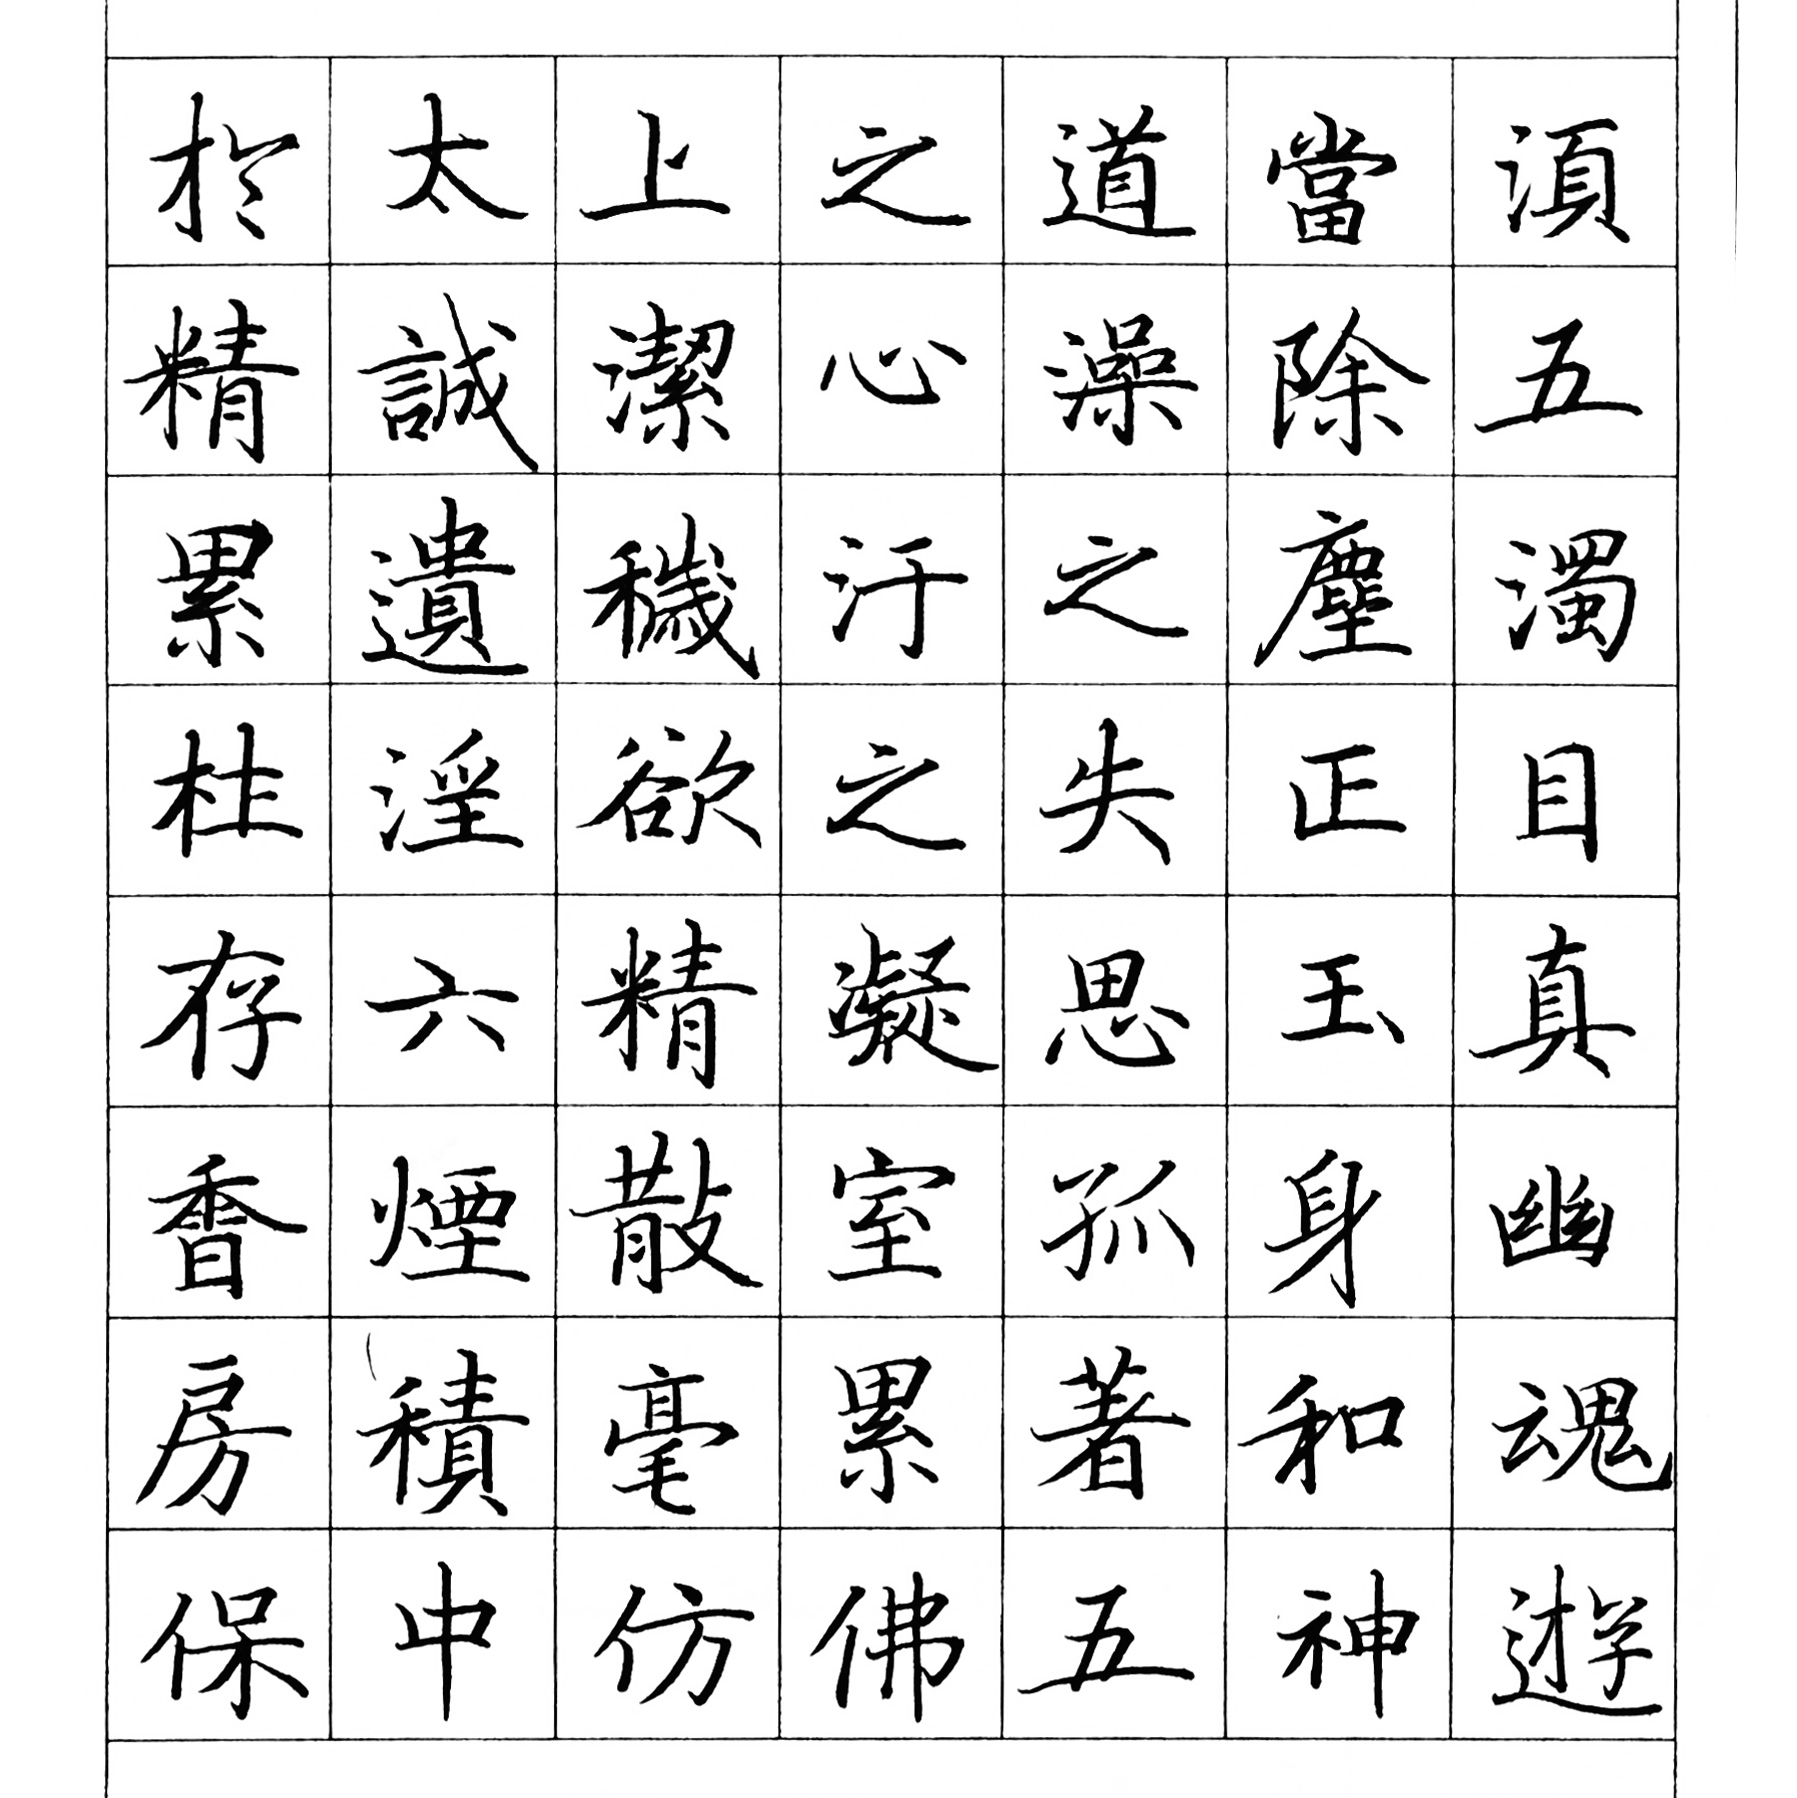 於太上之道當須
精誠潔心澡除五
累遺穢汙之塵濁
杜淫欲之失正目
存六精凝思玉真
香煙散室孤身幽
房積毫累著和魂
保中仿佛五神遊